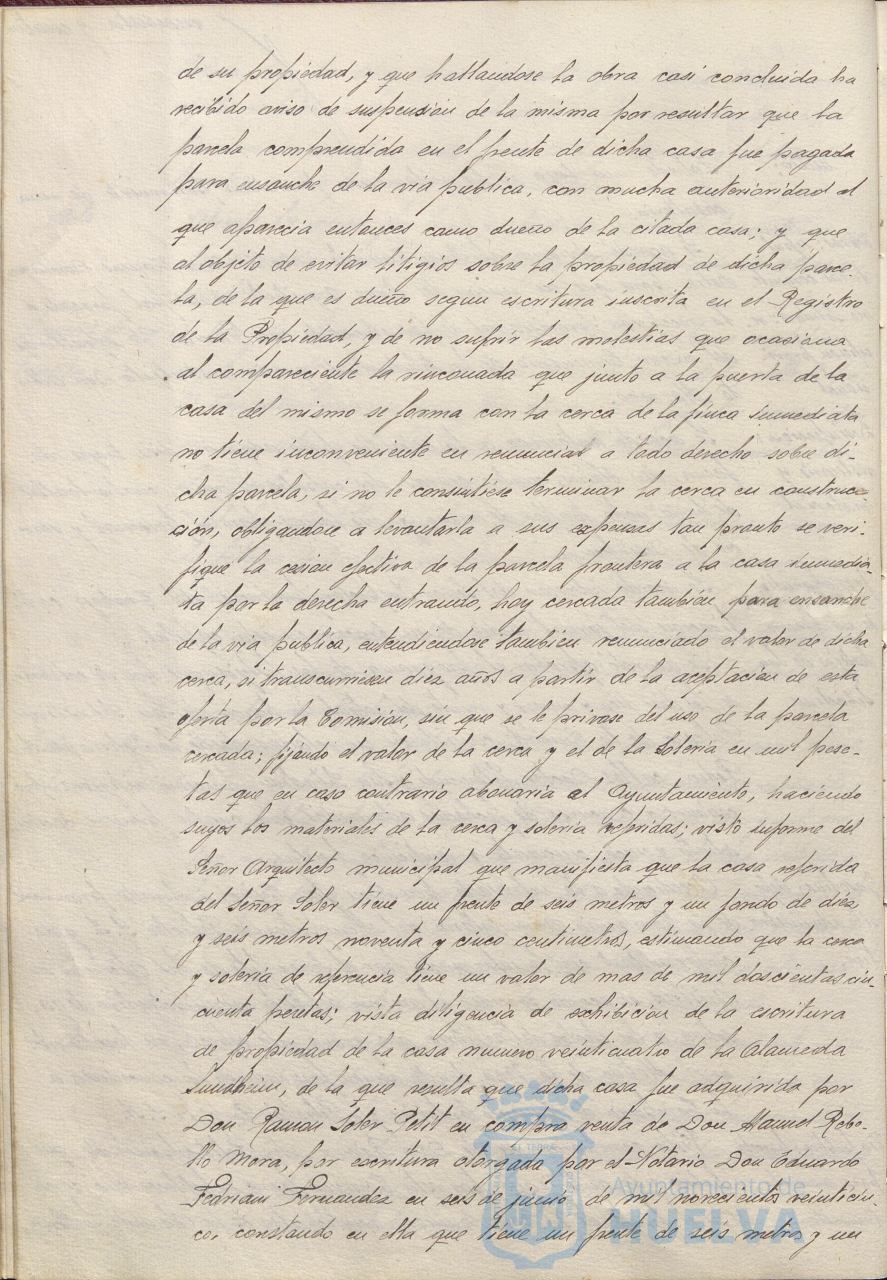 de su propiedad, y que hallandose la obra casi concluida ha
recibido aviso de suspensión de la misma por resultar que la
parcela comprendida en el frente de dicha casa fue pagada
para ensanche de la via publica, con mucha anterioridad al
que aparecia entonces como dueño de la citada casa; y que
al objeto de evitar litigios sobre la propiedad de dicha parce-
la, de la que es dueño segun escritura inscrita en el Registro
de la Propiedad, y de no sufrir las molestias que ocasiona
al compareciente la rinconada que junto a la puerta de la
casa del mismo se forma con la cerca de la finca inmediata
no tiene inconveniente en renunciar a todo derecho sobre di-
cha parcela, si no le consintiese terminar la cerca en construc-
ción, obligandose a levantarla a sus expensas tan pronto se veri-
fique la cesion efectiva de la parcela frontera a la casa inmedia-
ta por la derecha entrando, hoy cercada tambien para ensanche
de la via publica, entendiendose tambien renunciado el valor de dicha
cerca, si transcurriesen diez años a partir de la aceptación de esta
oferta por la Comisión, sin que se le privase del uso de la parcela
cercada; fijando el valor de la cerca y el de la Soleria en mil pese-
tas que en caso contrario abonaria el Ayuntamiento, haciendo
suyos los materiales de la cerca y soleria referidas; visto informe del
Señor Arquitecto municipal que manifiesta que la casa referida
del Señor Soler tiene un frente de seis metros y un fondo de diez
y seis metros noventa y cinco centimetros, estimando que la cerca
y soleria de referencia tiene un valor de mas de mil doscientas cin-
cuenta pesetas; vista diligencia de exhibición de la escritura
de propiedad de la casa numero veinticuatro de la Alameda
Sundheim, de la que resulta que dicha casa fue adquirida por
Don Ramon Soler Petit en compra venta de Don Manuel Rebo-
llo Mora, por escritura otorgada por el Notario Don Eduardo
Fedriani Fernandez en seis de junio de mil novecientos veinticin-
co, constando en ella que tiene un frente de seis metros y un
Ayuntamiento de
HUELVA